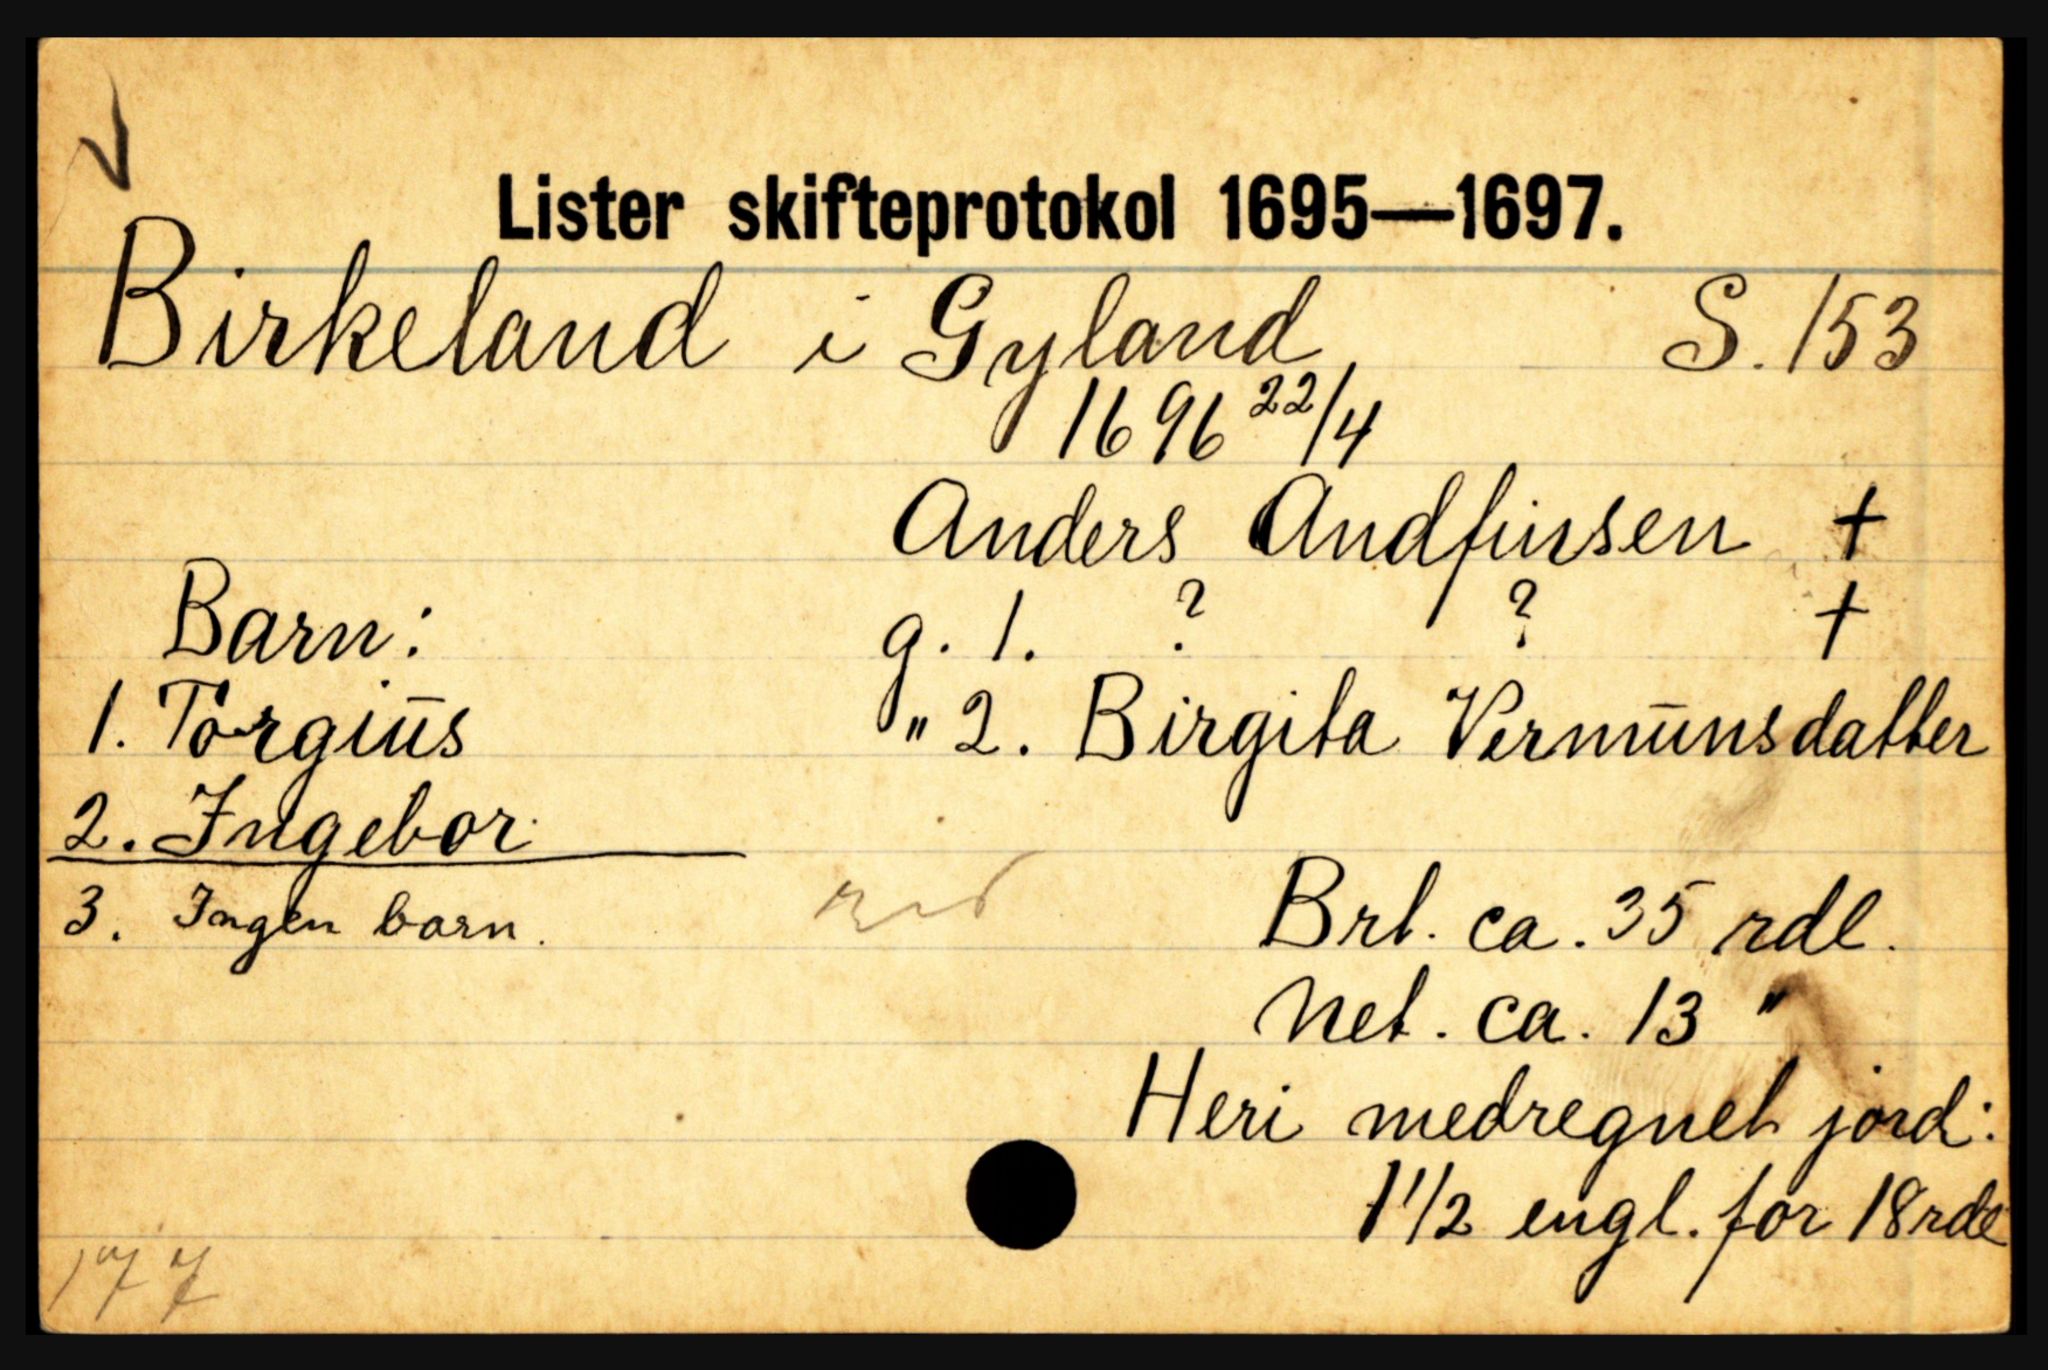 Lister skifteprotokol 1695—1697.
Birkeland i Gyland S. 153
1696 22/4
Anders Andfinsen †
g. 1. ? ? †
" 2. Birgita Vermūnsdatter
Barn:
1. Torgiūs
2. Ingebor
3. Ingen barn.
Brt. ca. 35 rdl.
Net. ca. 13 "
Heri medregnet jord:
1 1/2 engl. for 18 rdl
177